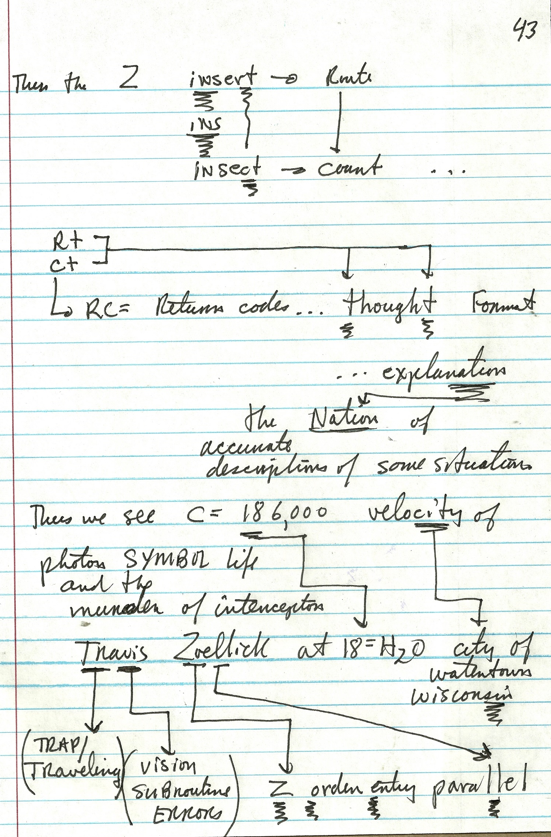 43
Then the Z insert → Route
INS
insect → count ...
Rt
Ct
RC = Return codes ... thought Format
... explanation
the Nation of
accurate
descriptions of some situation
Thus we see C = 186,000 velocity of
photon SYMBOL life
and the
murder of interceptor
Travis Zoellick at 18 = H2O city of
watertown
wisconsin
(TRAP/
Traveling)
(vision
subroutine
ERRORS)
Z order entry parallel